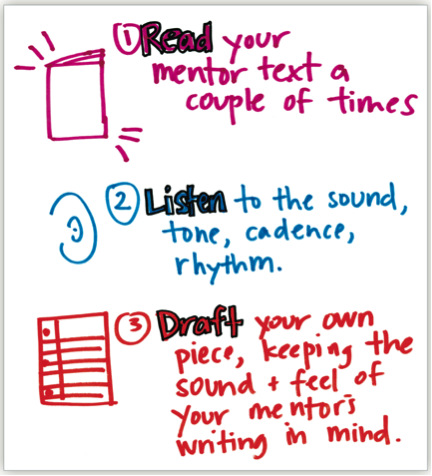 ① Read your
mentor text a
couple of times
② Listen to the sound,
tone, cadence,
rhythm.
③ Draft your own
piece, keeping the
sound + feel of
your mentor's
writing in mind.